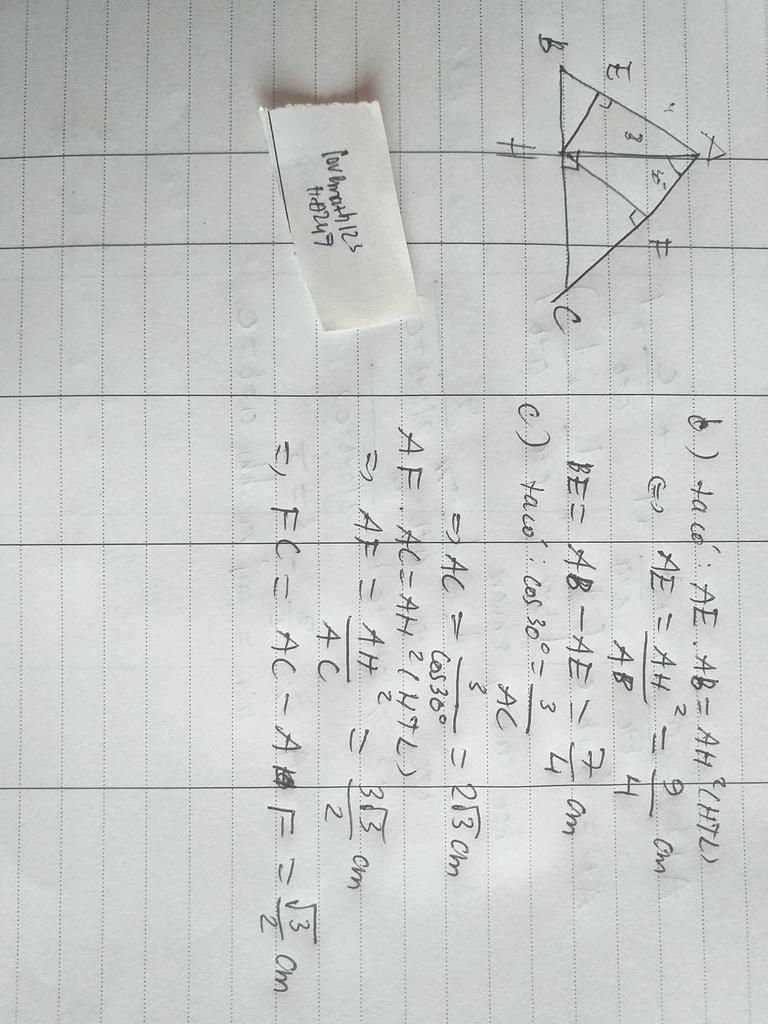 A
4
3
45°
E
F
B
H
C
lovemath123
Hoà247
b.) ta có: AE . AB = AH² (HTL)
⇔ AE = AH²/AB = 9/4 cm
BE = AB - AE = 7/4 cm
c) ta có: cos 30° = 3/AC
=> AC = 3/cos30° = 2√3 cm
AF . AC = AH² (HTL)
=> AF = AH²/AC = 3√3/2 cm
=> FC = AC - AF = √3/2 cm